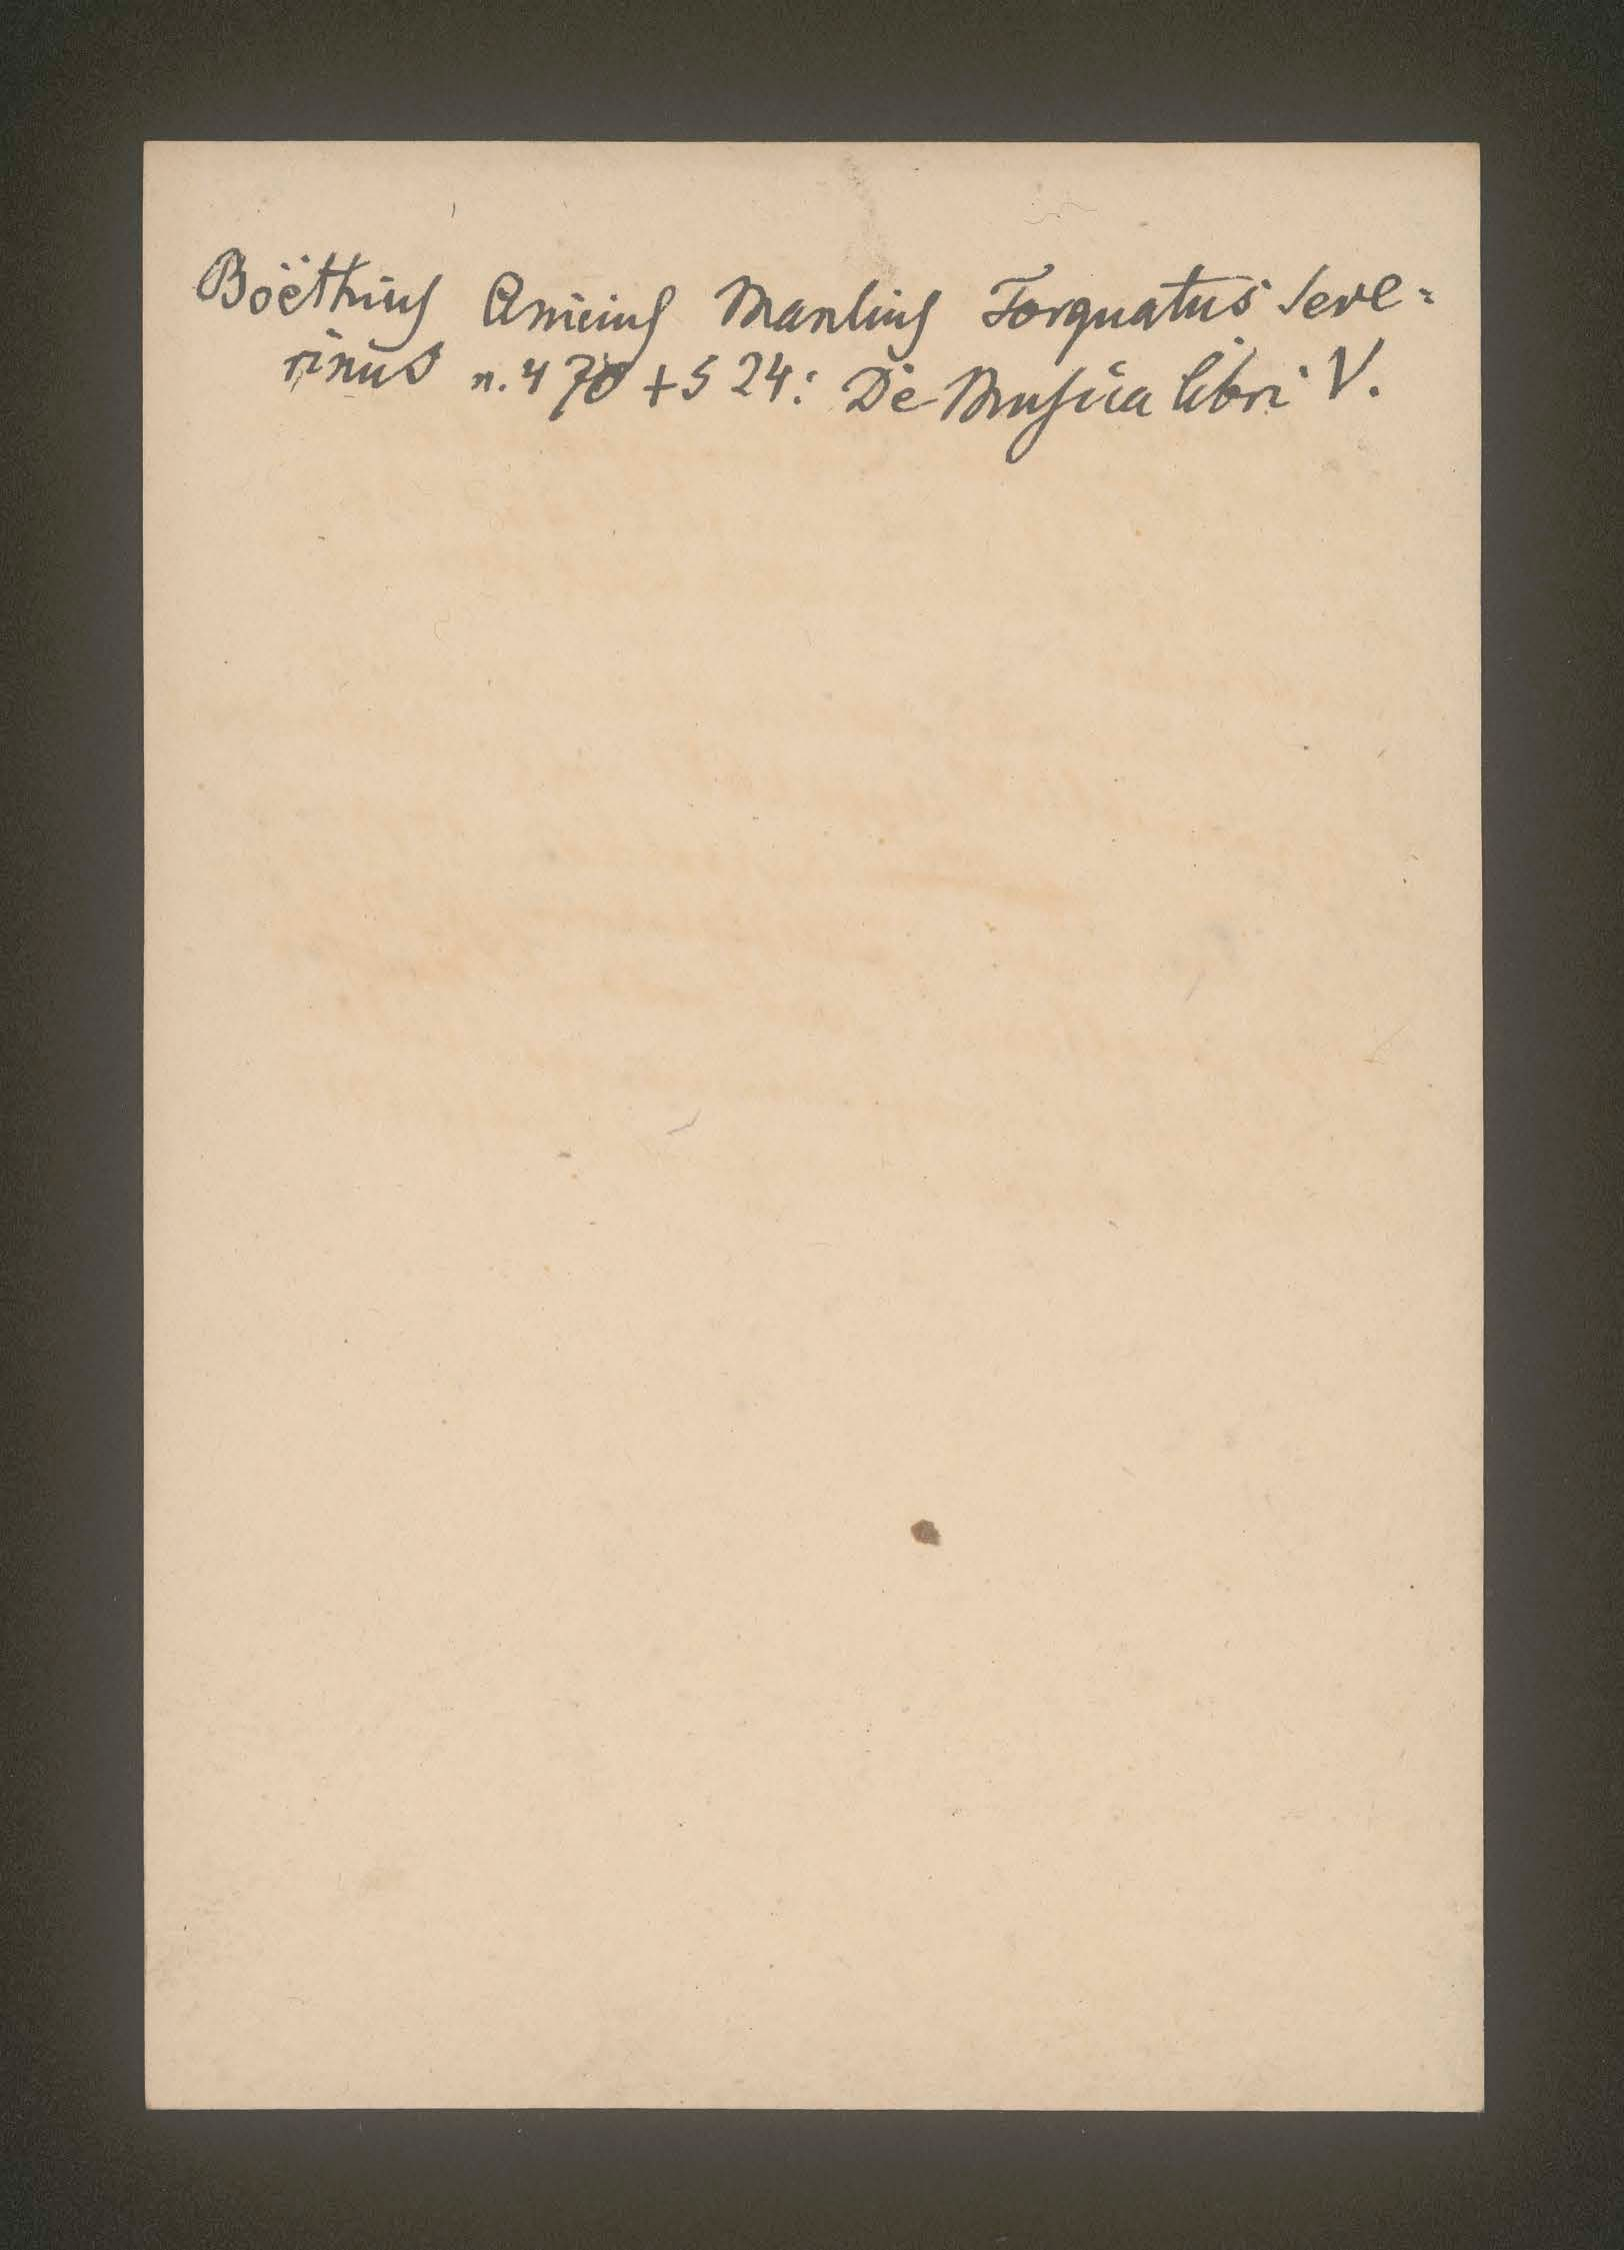 Boëthius Anicius Manlius Torquatus Seve=
rinus n. 470 + 524: De Musica libri V.